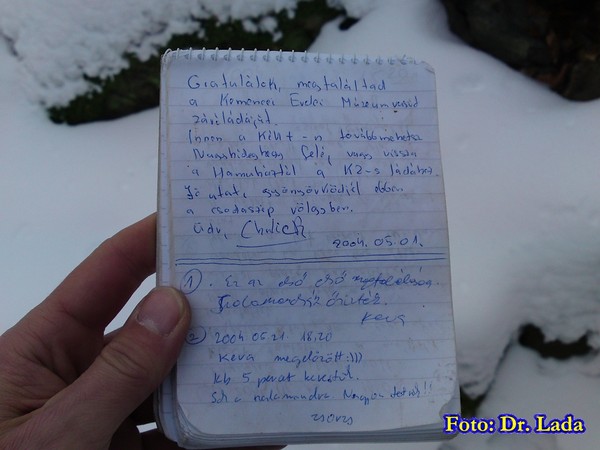 Gratulálok, megtaláltad
a Kemencei Erdei Múzeumvasút
záróládáját.
Innen a K2H+ -n továbbmehetsz
Nagyhideghegy felé, vagy vissza
a Hamuháztól a K2-s ládához.
Jó utat, gyönyörködjél ebben
a csodaszép völgyben.
üdv,
2004.05.01.
1. Ez az első első megtalálásom.
Keva
2 2004 05.21 18:20
Keva megelőzött:)))
kb 5 perccel
Nagyon tetszik!!
Foto: Dr. Lada